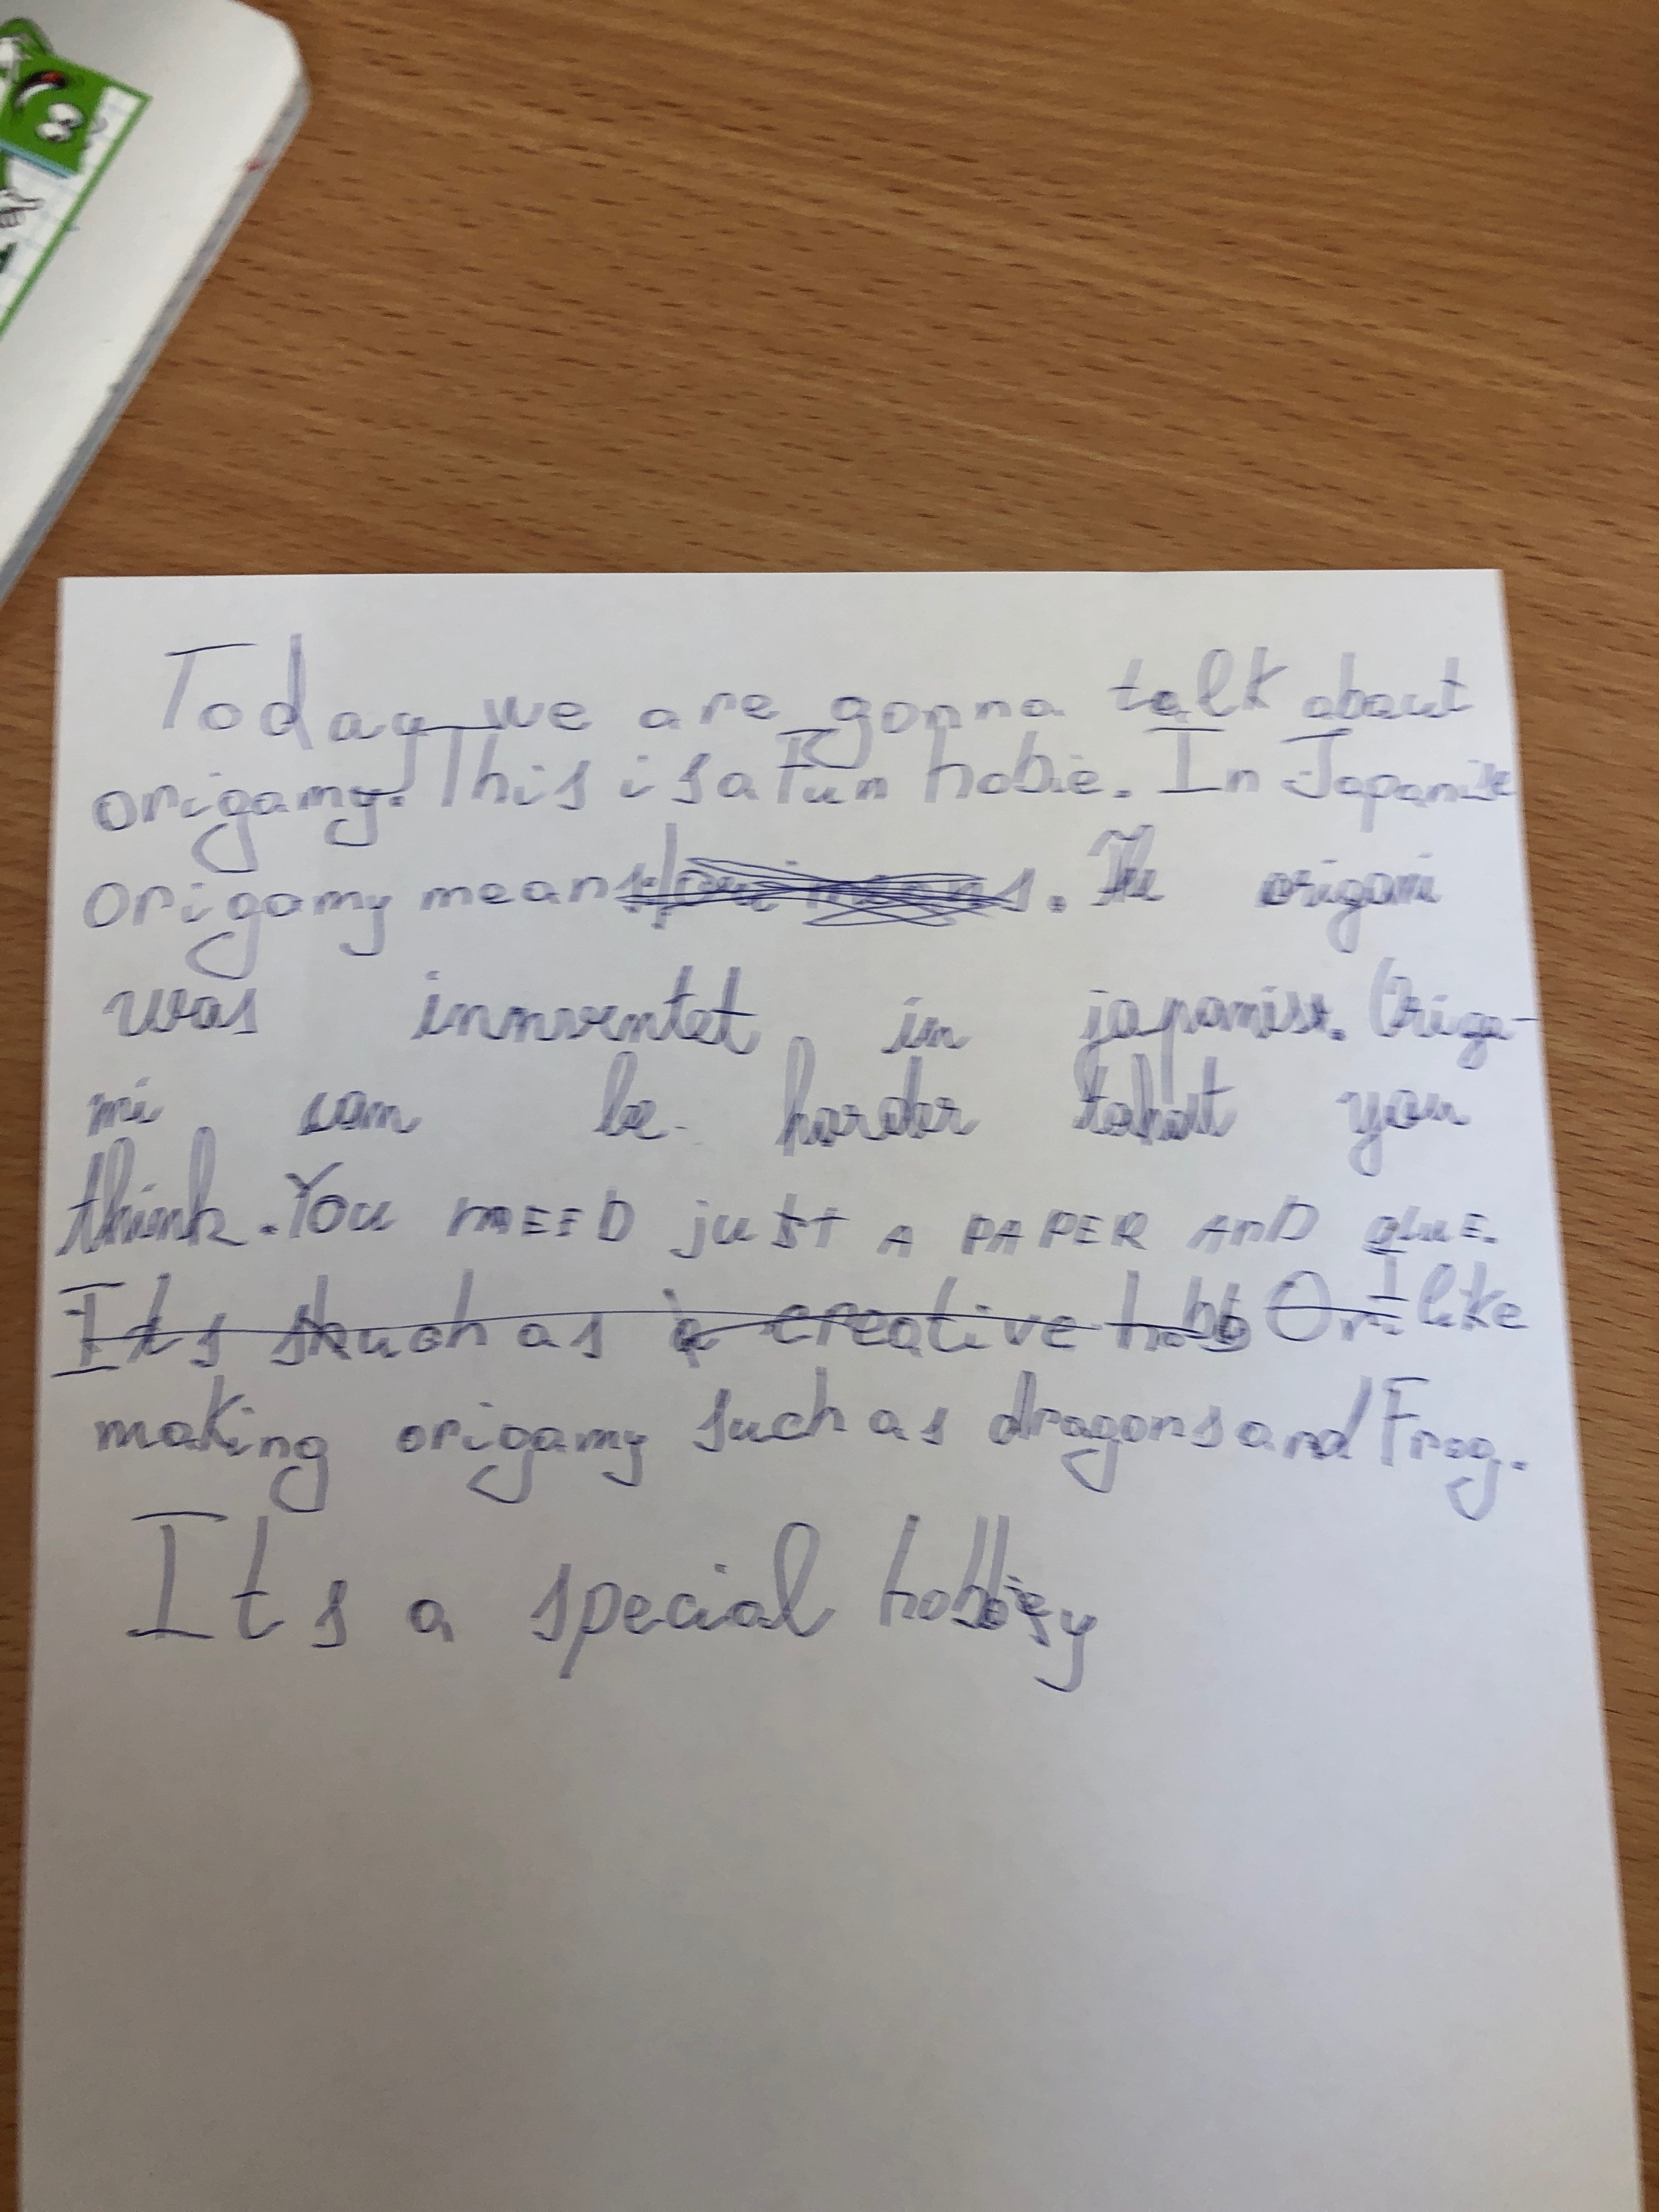 Today we are gonna talk about
origamy. This is a Fun hobie. In Japanise
origamy means. The origami
was innventet in japanise. Origa-
mi can be harder tahat you
think. You nEED just A PAPER AnD GluE.
Its such as a creative hobb Ori I like
making origamy such as dragons and Frog.
Its a special hobby